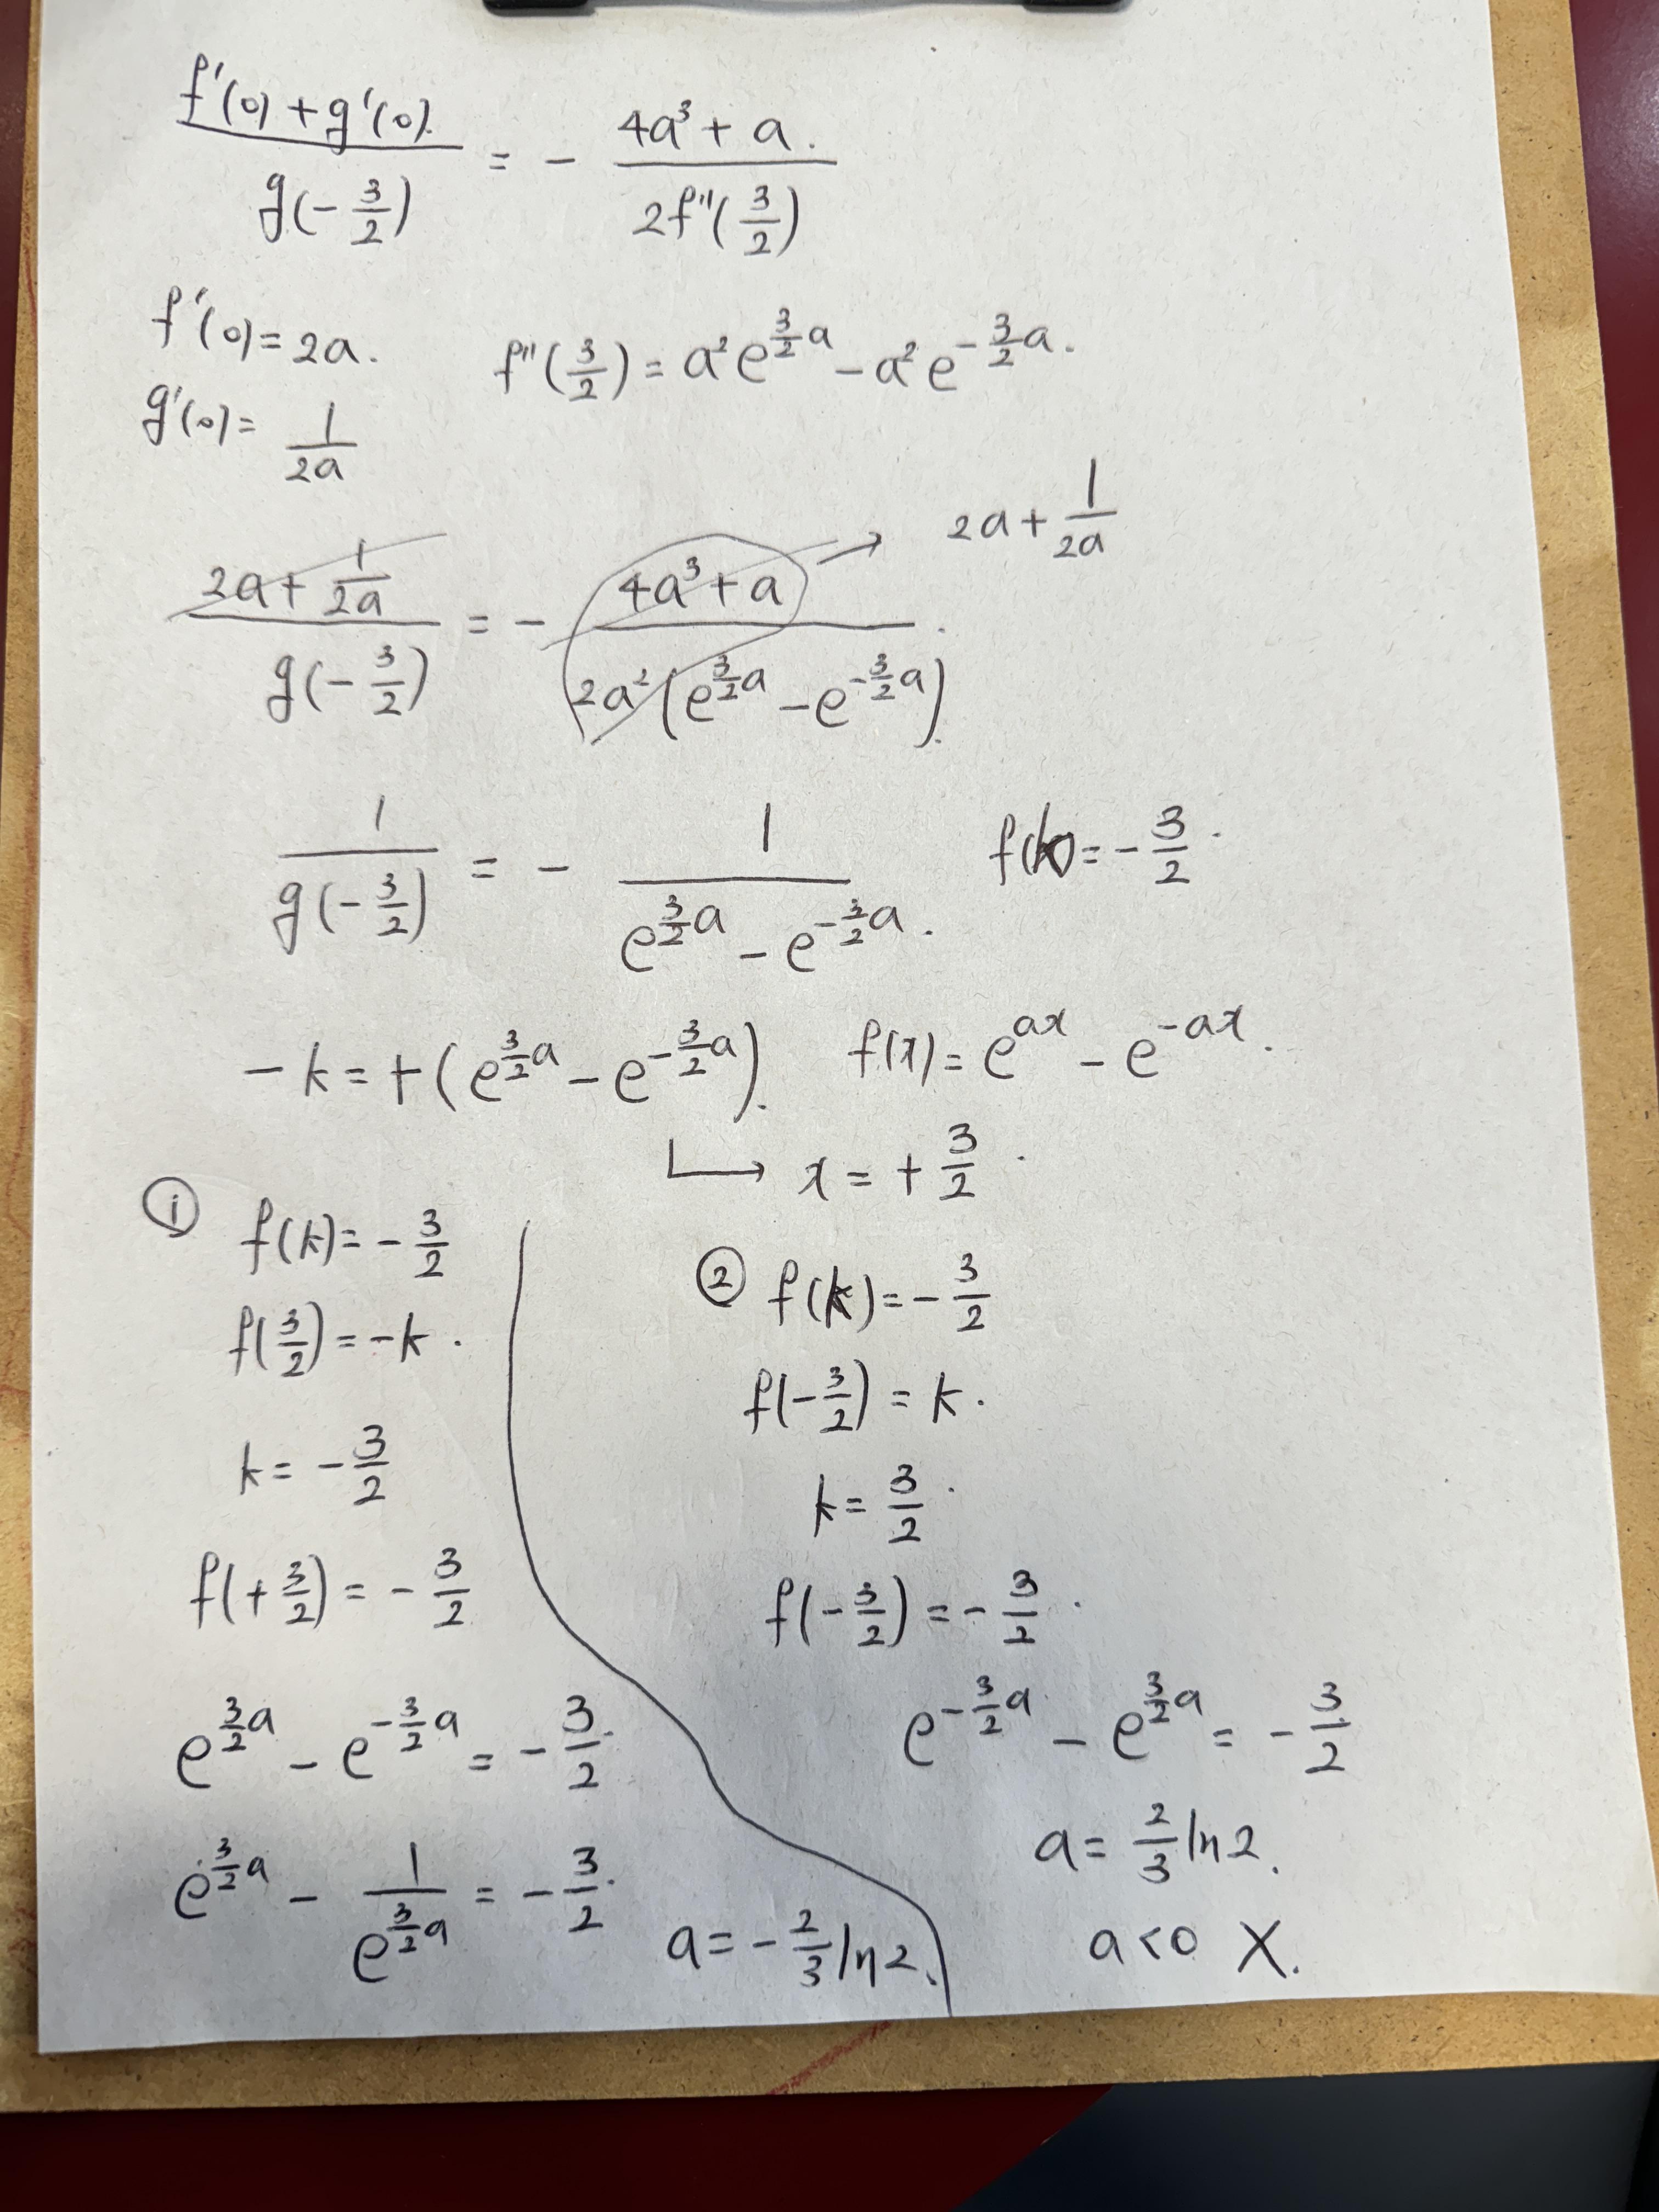 f'(0) + g'(0) / g(-3/2) = - 4a³ + a. / 2f''(3/2)
f'(0) = 2a.
f''(3/2) = a²e^{3/2 a} - a²e^{-3/2 a}.
g'(0) = 1/2a
2a + 1/2a
2a + 1/2a / g(-3/2) = - 4a³ + a / 2a²(e^{3/2 a} - e^{-3/2 a}).
1 / g(-3/2) = - 1 / e^{3/2 a} - e^{-3/2 a}.
f(k) = -3/2.
-k = +(e^{3/2 a} - e^{-3/2 a}).
f(x) = e^{ax} - e^{-ax}.
↳ x = +3/2.
① f(k) = -3/2
f(3/2) = -k.
k = -3/2
f(+3/2) = -3/2
e^{3/2 a} - e^{-3/2 a} = -3/2.
e^{3/2 a} - 1/e^{3/2 a} = -3/2.
a = -2/3 ln2.
② f(k) = -3/2
f(-3/2) = k.
k = 3/2.
f(-3/2) = -3/2.
e^{-3/2 a} - e^{3/2 a} = -3/2
a = 2/3 ln2.
a<0 X.